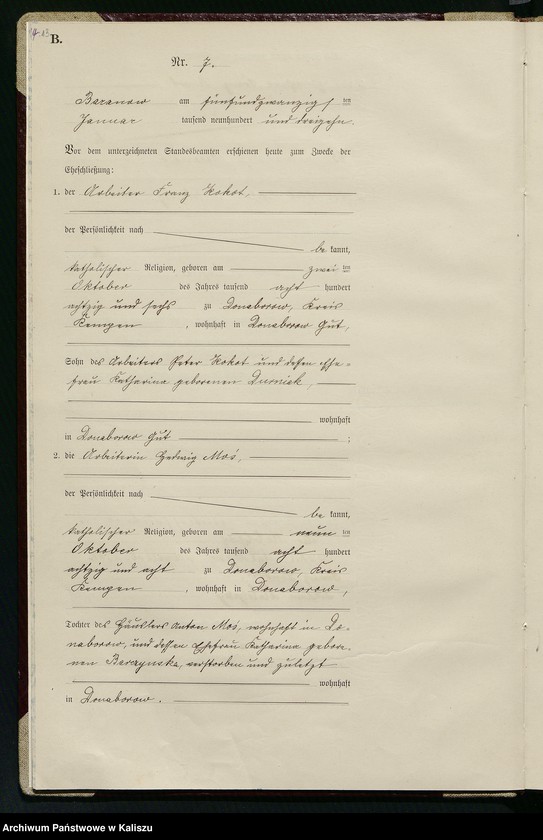 B.
Nr. 7.
Baranow am fünfundzwanzig ten
Januar tausend neunhundert und dreizehn.
Vor dem unterzeichneten Standesbeamten erschienen heute zum Zwecke der
Eheschließung:
1. der Arbeiter Franz Kokot,
der Persönlichkeit nach
be kannt,
katholischer Religion, geboren am zwei ten
Oktober des Jahres tausend acht hundert
achtzig und sechs zu Donaborow, Kreis
Kempen, wohnhaft in Donaborow Gut,
Sohn des Arbeiters Peter Kokot und dessen Ehe-
frau Katharina geborenen Durniak,
wohnhaft
in Donaborow Gut ;
2. die Arbeiterin Hedwig Moś,
der Persönlichkeit nach
be kannt,
katholischer Religion, geboren am neun ten
Oktober des Jahres tausend acht hundert
achtzig und acht zu Donaborow, Kreis
Kempen, wohnhaft in Donaborow,
Tochter des Häuslers Anton Moś, wohnhaft in Do-
naborow, und dessen Ehefrau Katharina gebore-
nen Barczynska, verstorben und zuletzt
wohnhaft
in Donaborow.
Archiwum Państwowe w Kaliszu